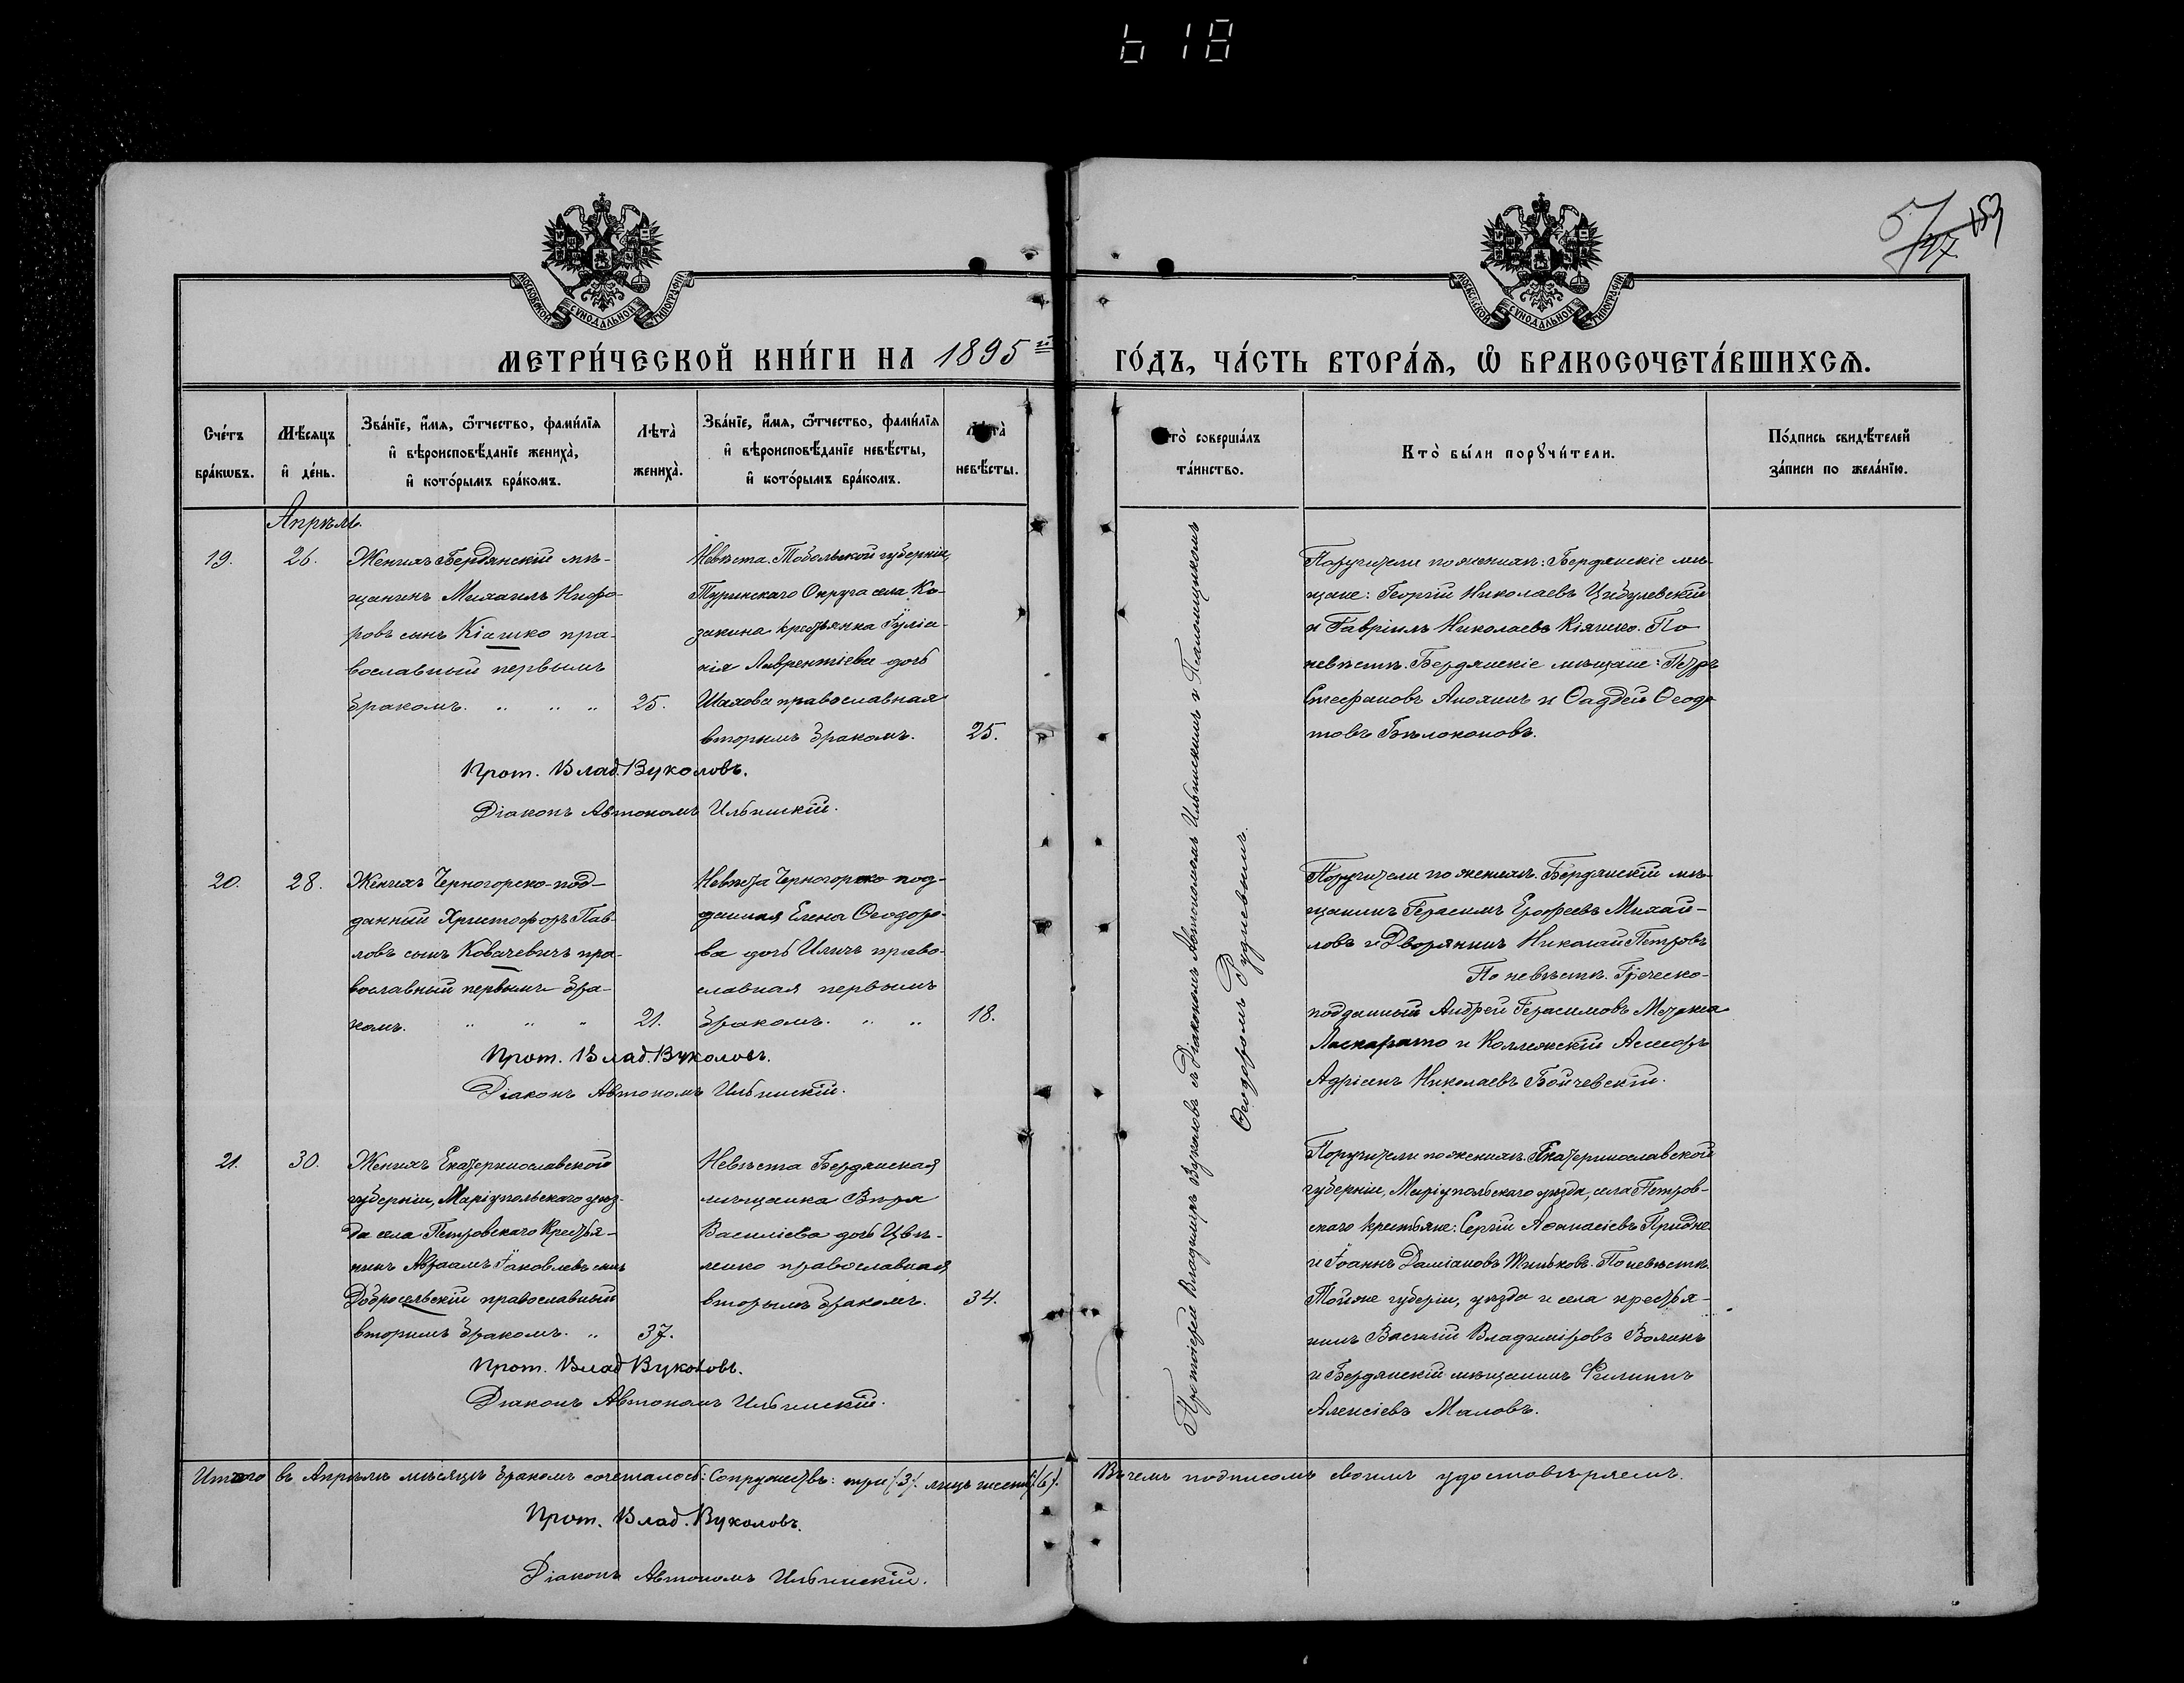 618
57
27
153
МОСКОВСКОЙ СУНОДАЛЬНОЙ ТИПОГРАФІИ
МОСКОВСКОЙ СУНОДАЛЬНОЙ ТИПОГРАФІИ
МЕТРИ́ЧЕСКОЙ КНИ́ГИ НА 1895 й ГО́ДЪ, ЧА́СТЬ ВТОРА́Ѧ, Ѽ БРАКОСОЧЕТА́ВШИХСѦ.
Сче́тъ бра́кѡвъ.
Мѣ́сяцъ и҆ де́нь.
Зва́нїе, и҆́мя, ѻ҆́тчество, фами́лїя
и҆ вѣроисповѣ́данїе жениха̀,
и҆ кото́рымъ бра́комъ.
Лѣта̀ жениха̀.
Зва́нїе, и҆́мя, ѻ҆́тчество, фами́лїя
и҆ вѣроисповѣ́данїе невѣ́сты,
и҆ кото́рымъ бра́комъ.
Лѣта̀ невѣ́сты.
Кто̀ соверша́лъ та́инство.
Кто̀ бы́ли порꙋчи́тели.
По́дпись свидѣ́телей за́писи по жела́нїю.
Апрѣль.
19.
26.
Женихъ Бердянскій мѣ-
щанинъ Михаилъ Нифо-
ровъ сынъ Кіашко пра-
вославный первымъ
бракомъ. 25.
Невѣста. Тобольской губерніи,
Туринскаго Округа села Ко-
закина крестьянка Іуліа-
нія Лаврентіева дочь
Шахова православная
вторымъ бракомъ. 25.
Поручители по женихѣ: Бердянскіе мѣ-
щане: Георгій Николаевъ Цибулевскій
и Гавріилъ Николаевъ Кіяшко. По
невѣстѣ. Бердянскіе мѣщане: Петръ
Стефановъ Анохинъ и Ѳаддей Ѳеодо-
товъ Бѣлоконовъ.
Прот. Влад. Вуколовъ.
Діаконъ Автономъ Ильинскій.
20.
28.
Женихъ Черногорско-под-
данный Христофоръ Пав-
ловъ сынъ Ковачевичъ пра-
вославный первымъ бра-
комъ. 21.
Невѣста Черногорско под-
данная Елена Ѳеодоро-
ва дочь Иличъ право-
славная первымъ
бракомъ. 18.
Поручители по женихѣ. Бердянскій мѣ-
щанинъ Герасимъ Ерофеевъ Михай-
ловъ и Дворянинъ Николай Петровъ
По невѣстѣ. Греческо-
подданный Андрей Герасимовъ Метакса
Ласкарато и Коллежскій Асесоръ
Адріанъ Николаевъ Бойчевскій.
Прот. Влад. Вуколовъ.
Діаконъ Автономъ Ильинскій.
21.
30.
Женихъ Екатеринославской
губерніи, Маріупольскаго уѣз-
да села Петровскаго Крестья-
нинъ Авраамъ Іаковлевъ сынъ
Добросельскій православный
вторымъ бракомъ. 37.
Невѣста Бердянская
мѣщанка Вѣра
Василіева дочь Цвѣ-
ленко православная,
вторымъ бракомъ. 34.
Поручители по женихѣ. Екатеринославской
губерніи, Маріупольскаго уѣзда, села Петров-
скаго крестьяне: Сергій Аѳанасіевъ Придне
и Іоаннъ Даміановъ Житковъ. По невѣстѣ.
Тойже губеріи, уѣзда и села крестья-
нинъ Василій Владиміровъ Воликъ
и Бердянскій мѣщанинъ Филиппъ
Алексіевъ Маловъ.
Прот. Влад Вуколовъ.
Діаконъ Автономъ Ильинскій.
Протоіерей Владиміръ Вуколовъ съ Діакономъ Автономомъ Ильинскимъ и Псаломщикомъ
Ѳеодоромъ Рудневымъ.
Итого въ Апрѣлѣ мѣсяцѣ бракомъ сочеталось: Супружествъ: три /3/. лицъ шесть /6/. Въ чемъ подписомъ своимъ удостовѣряемъ.
Прот. Влад. Вуколовъ.
Діаконъ Автономъ Ильинскій.